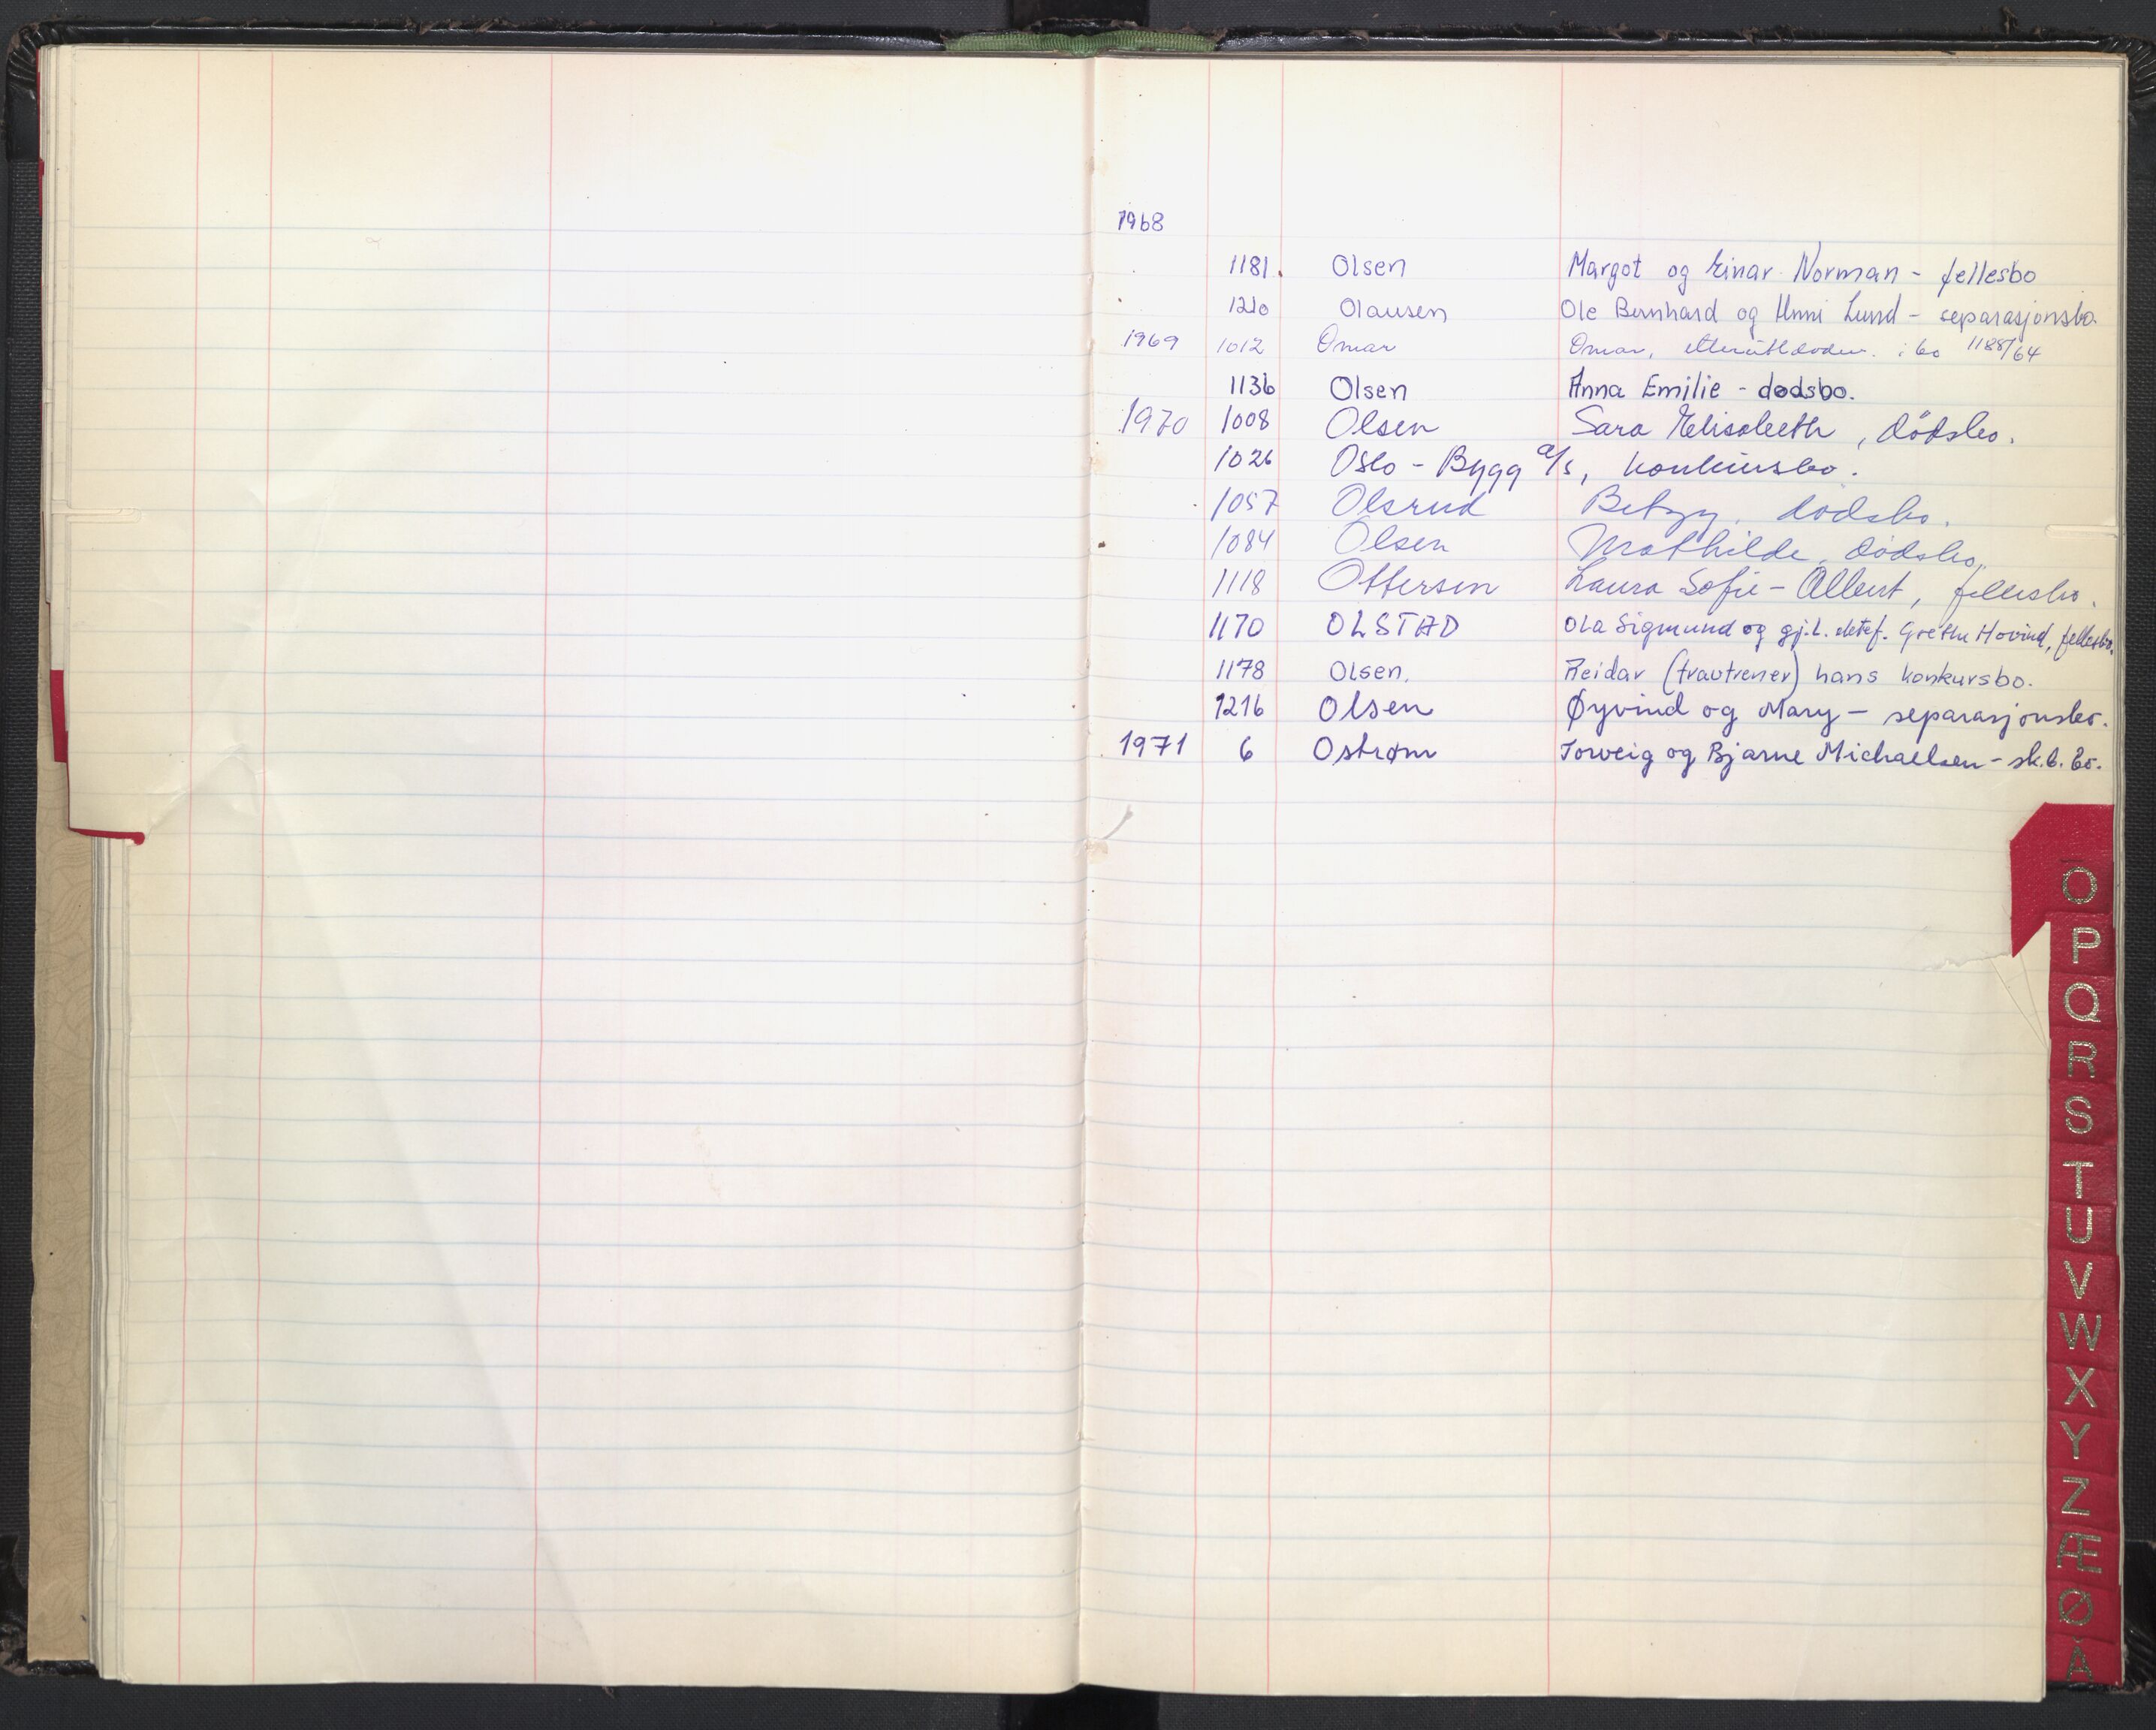 1968
1181. Olsen Margot og Einar Norman - fellesbo
1210 Olausen Ole Bernhard og Unni Lund - separasjonsbo.
1969 1012 Omar Omar, i bo 1188/64
1136 Olsen Anna Emilie - dødsbo.
1970 1008 Olsen Sara Elisabeth, dødsbo.
1026 Oslo - Bygg a/s, konkursbo.
1057 Olsrud Betzy, dødsbo.
1084 Olsen Mathilde, dødsbo,
1118 Ottersen Laura Sofie - Albert, fellesbo.
1170 OLSTAD Ola Sigmund og gj.l. Grethe Hovind, fellesbo.
1178 Olsen. Reidar (travtrener) hans konkursbo.
1216 Olsen Øyvind og Mary - separasjonsbo.
1971 6 Ostrøm Torveig og Bjarne Michaelsen - sk.b. bo.
O
P
Q
R
S
T
U
V
W
X
Y
Z
Æ
Ø
Å